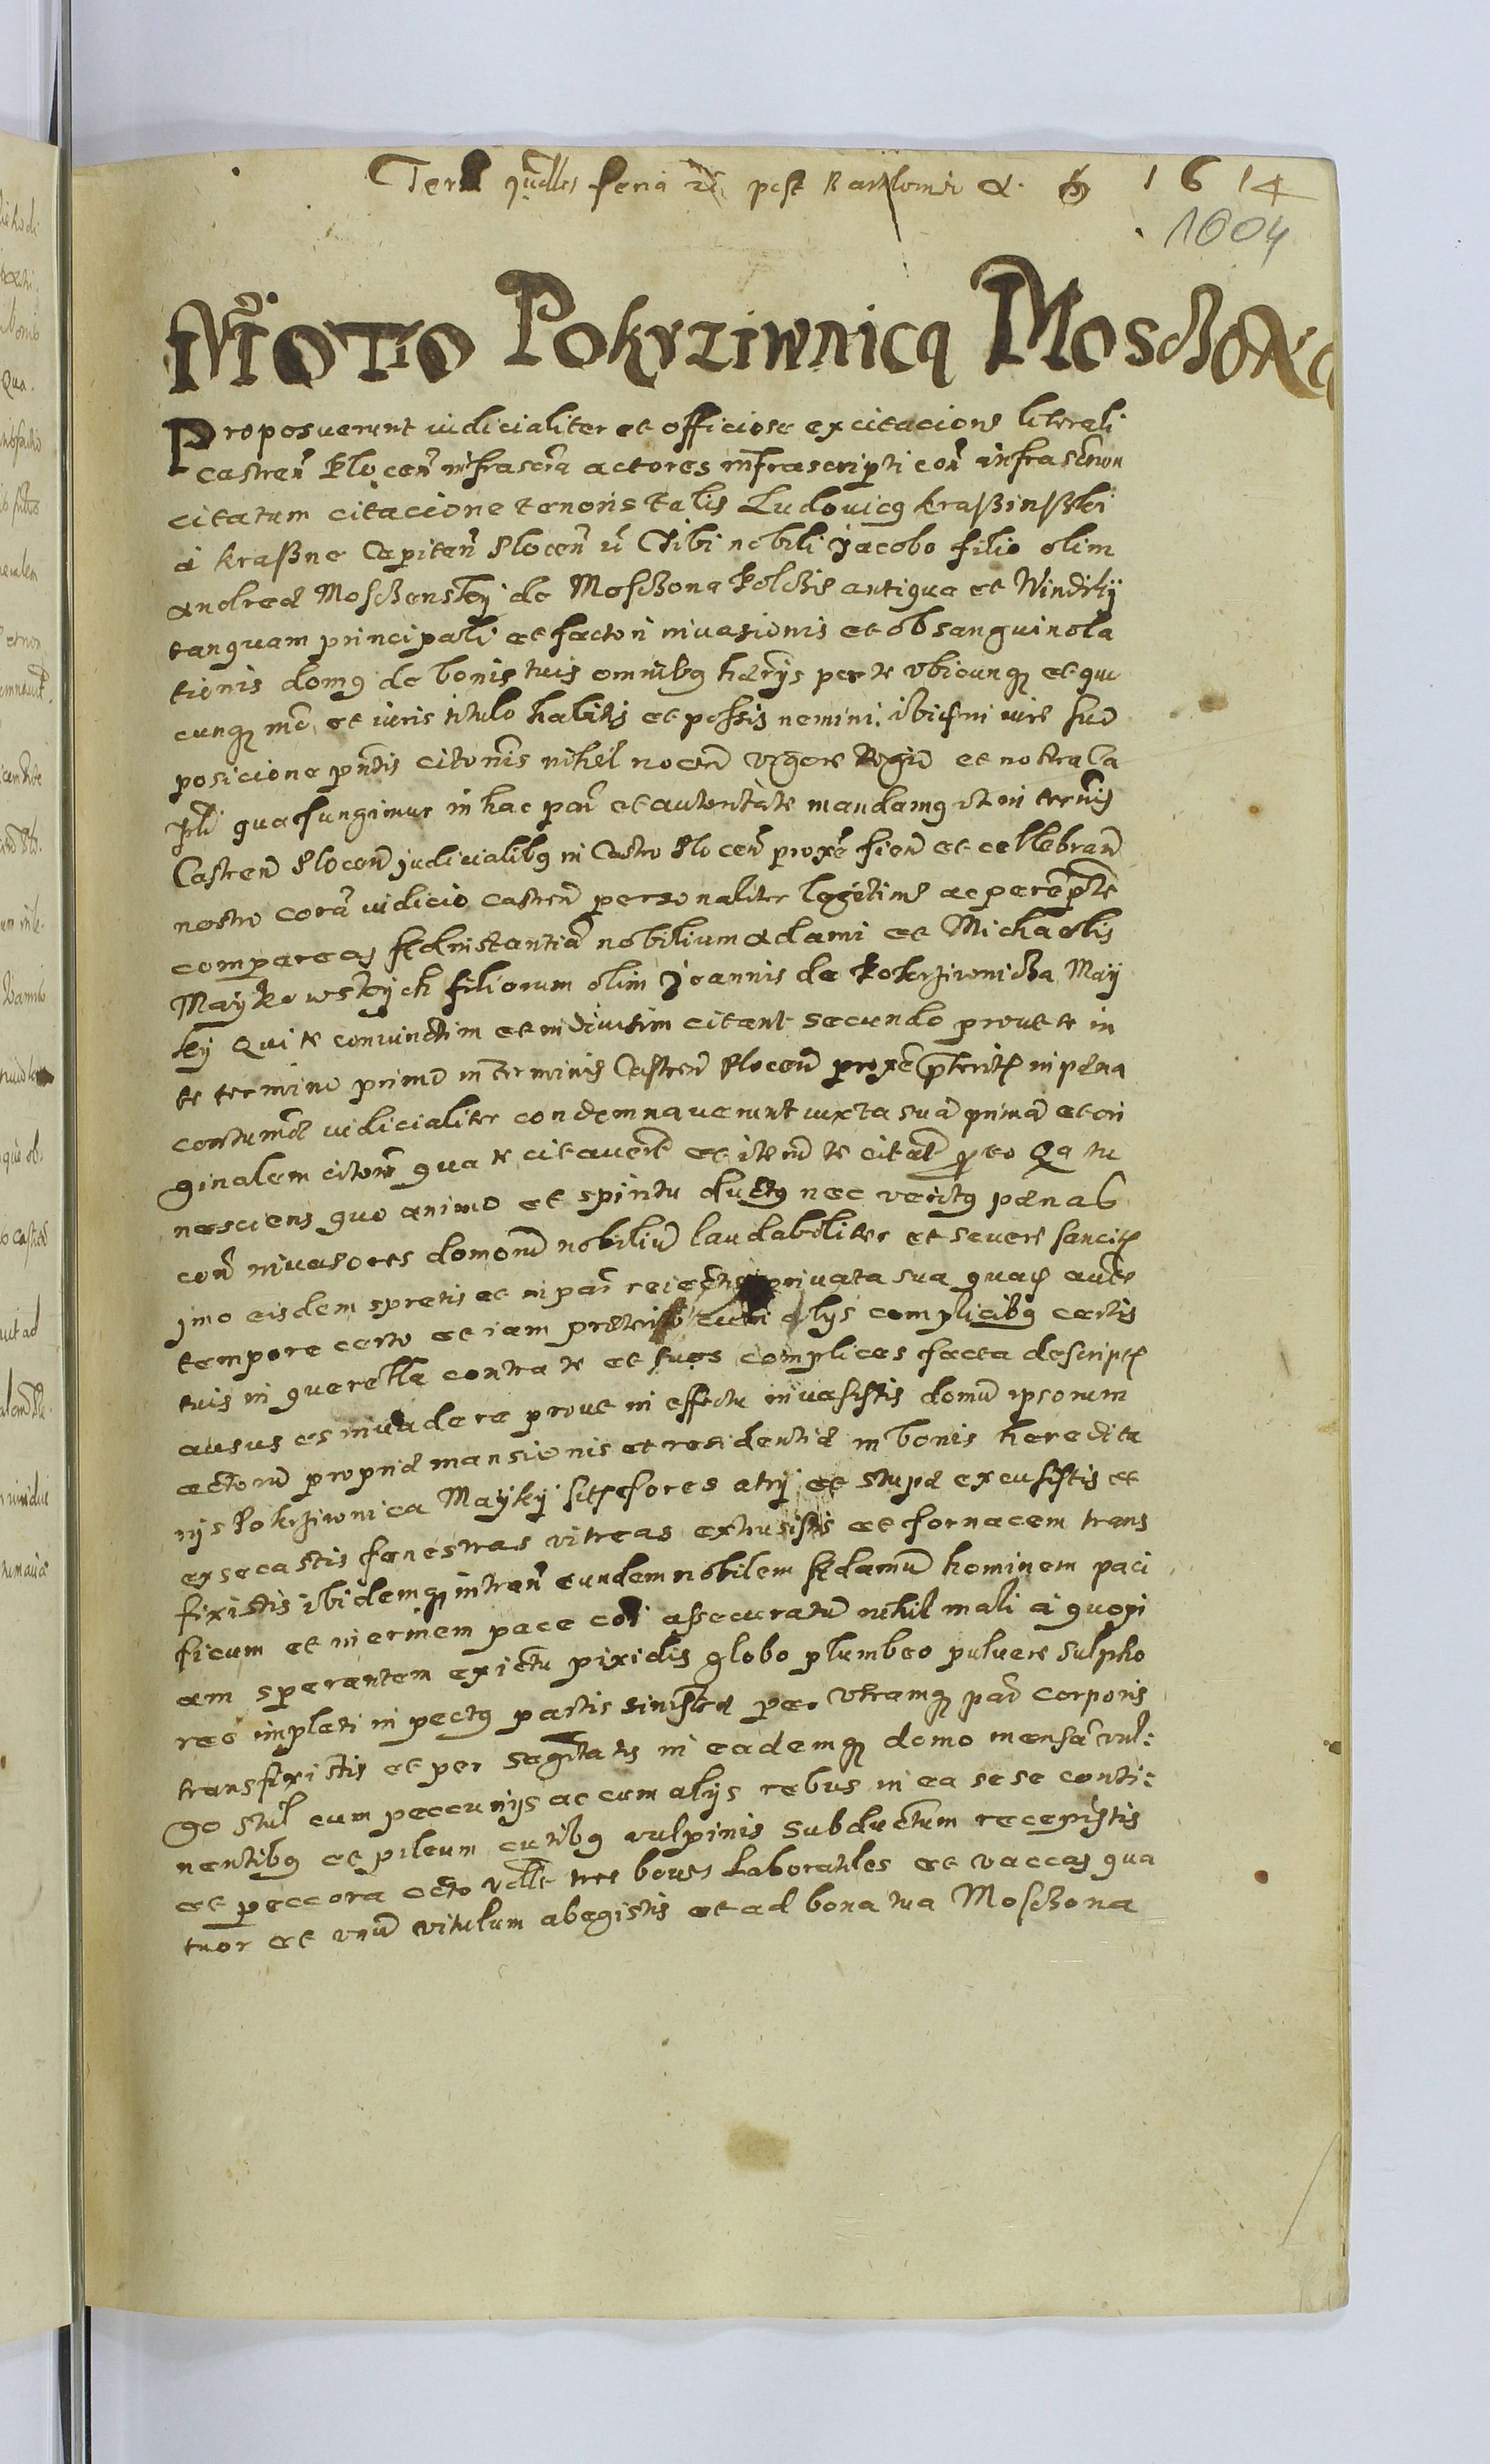 Ter quellȩ feria 2 post Bartlomei A. D. 1614
1004
Moto Pokrziwnicą Moschon
Proposuerunt iudicialiter et officiose ex citacione literali
castren Plocen infrascria actores infrascripti con infrascrum
citatum citacione tenoris talis Ludouicus Kraßinßki
à Kraßne Capiten Plocen Tibi nobili Jacobo filio olim
Andreæ Moschenskÿ de Moschona Kolchis antiqua et Winditÿ
tanquam principali et factori inuasionis et obsanguinola
tionis domus de bonis tuis omnibus harijs per te vbicunque et quo
cunque mo et iuris titulo habitis et possis nemini ibidem iure suo
posicione pntis citonis nihil nocen vigore regia et nostra Ca
ptli qua fungimur in hac par et autoritate mandamus vt in ternis
Castren Plocen judicialibus in Castro Plocen proxe fien et cellebran
nostro corã iudicio castren personaliter legitime ac peremptę
compareas Ad instantiã nobilium Adami et Michaelis
Maÿkowskÿch filiorum olim Joannis de Pokrziwnicza Maÿ
kÿ Qui te coniunctim et in diuisim citant secundo prout te in
te termino primo in terminis Castren Plocen proxe preterit in pæna
contumã iudicialiter condemnauerunt iuxta suã primã et ori
ginalem citonem qua te citauert et iterũ te citant pro eo Qa tu
nesciens quo animo et spiritu ductus nec veritus pænas
con inuasores domorũ nobiliũ laudabiliter et seuere sancit
ymo eisdem spretis et in par reiectis priuata sua quadam aucte
tempore certo et iam præterito cum alys complicibus certis
tuis in querella contra te et tuos complices facta descript
ausus es inuadere prout in effectu inuasistis domũ ipsorum
actorũ propriæ mansionis et residentiæ in bonis heredita
rijs Pokrziwnica Maÿkÿ sitt fores atrij et stupæ excusistis et
exsecastis fenestras vitreas extrusistis et fornacem trans
fixistis ibidemque intran eundem nobilem Adamũ hominem paci
ficum et inermem pace coi assecuratũ nihil mali à quopi
am sperantem ex ictu pixidis globo plumbeo puluere sulpho
reo impleti in pectus partis sinistræ per vtramque par corporis
transfixistis et per sagittatis in eademque domo mensã vul:
go Stul cum peccunijs ac cum alijs rebus in ea sese conti:
nentibus et pileum cutibus vulpinis subductum recepistis
et peccora octo vdlt tres boues laboratiles et vaccas qua
tuor et vnũ vitulum abegistis et ad bona tua Moschona